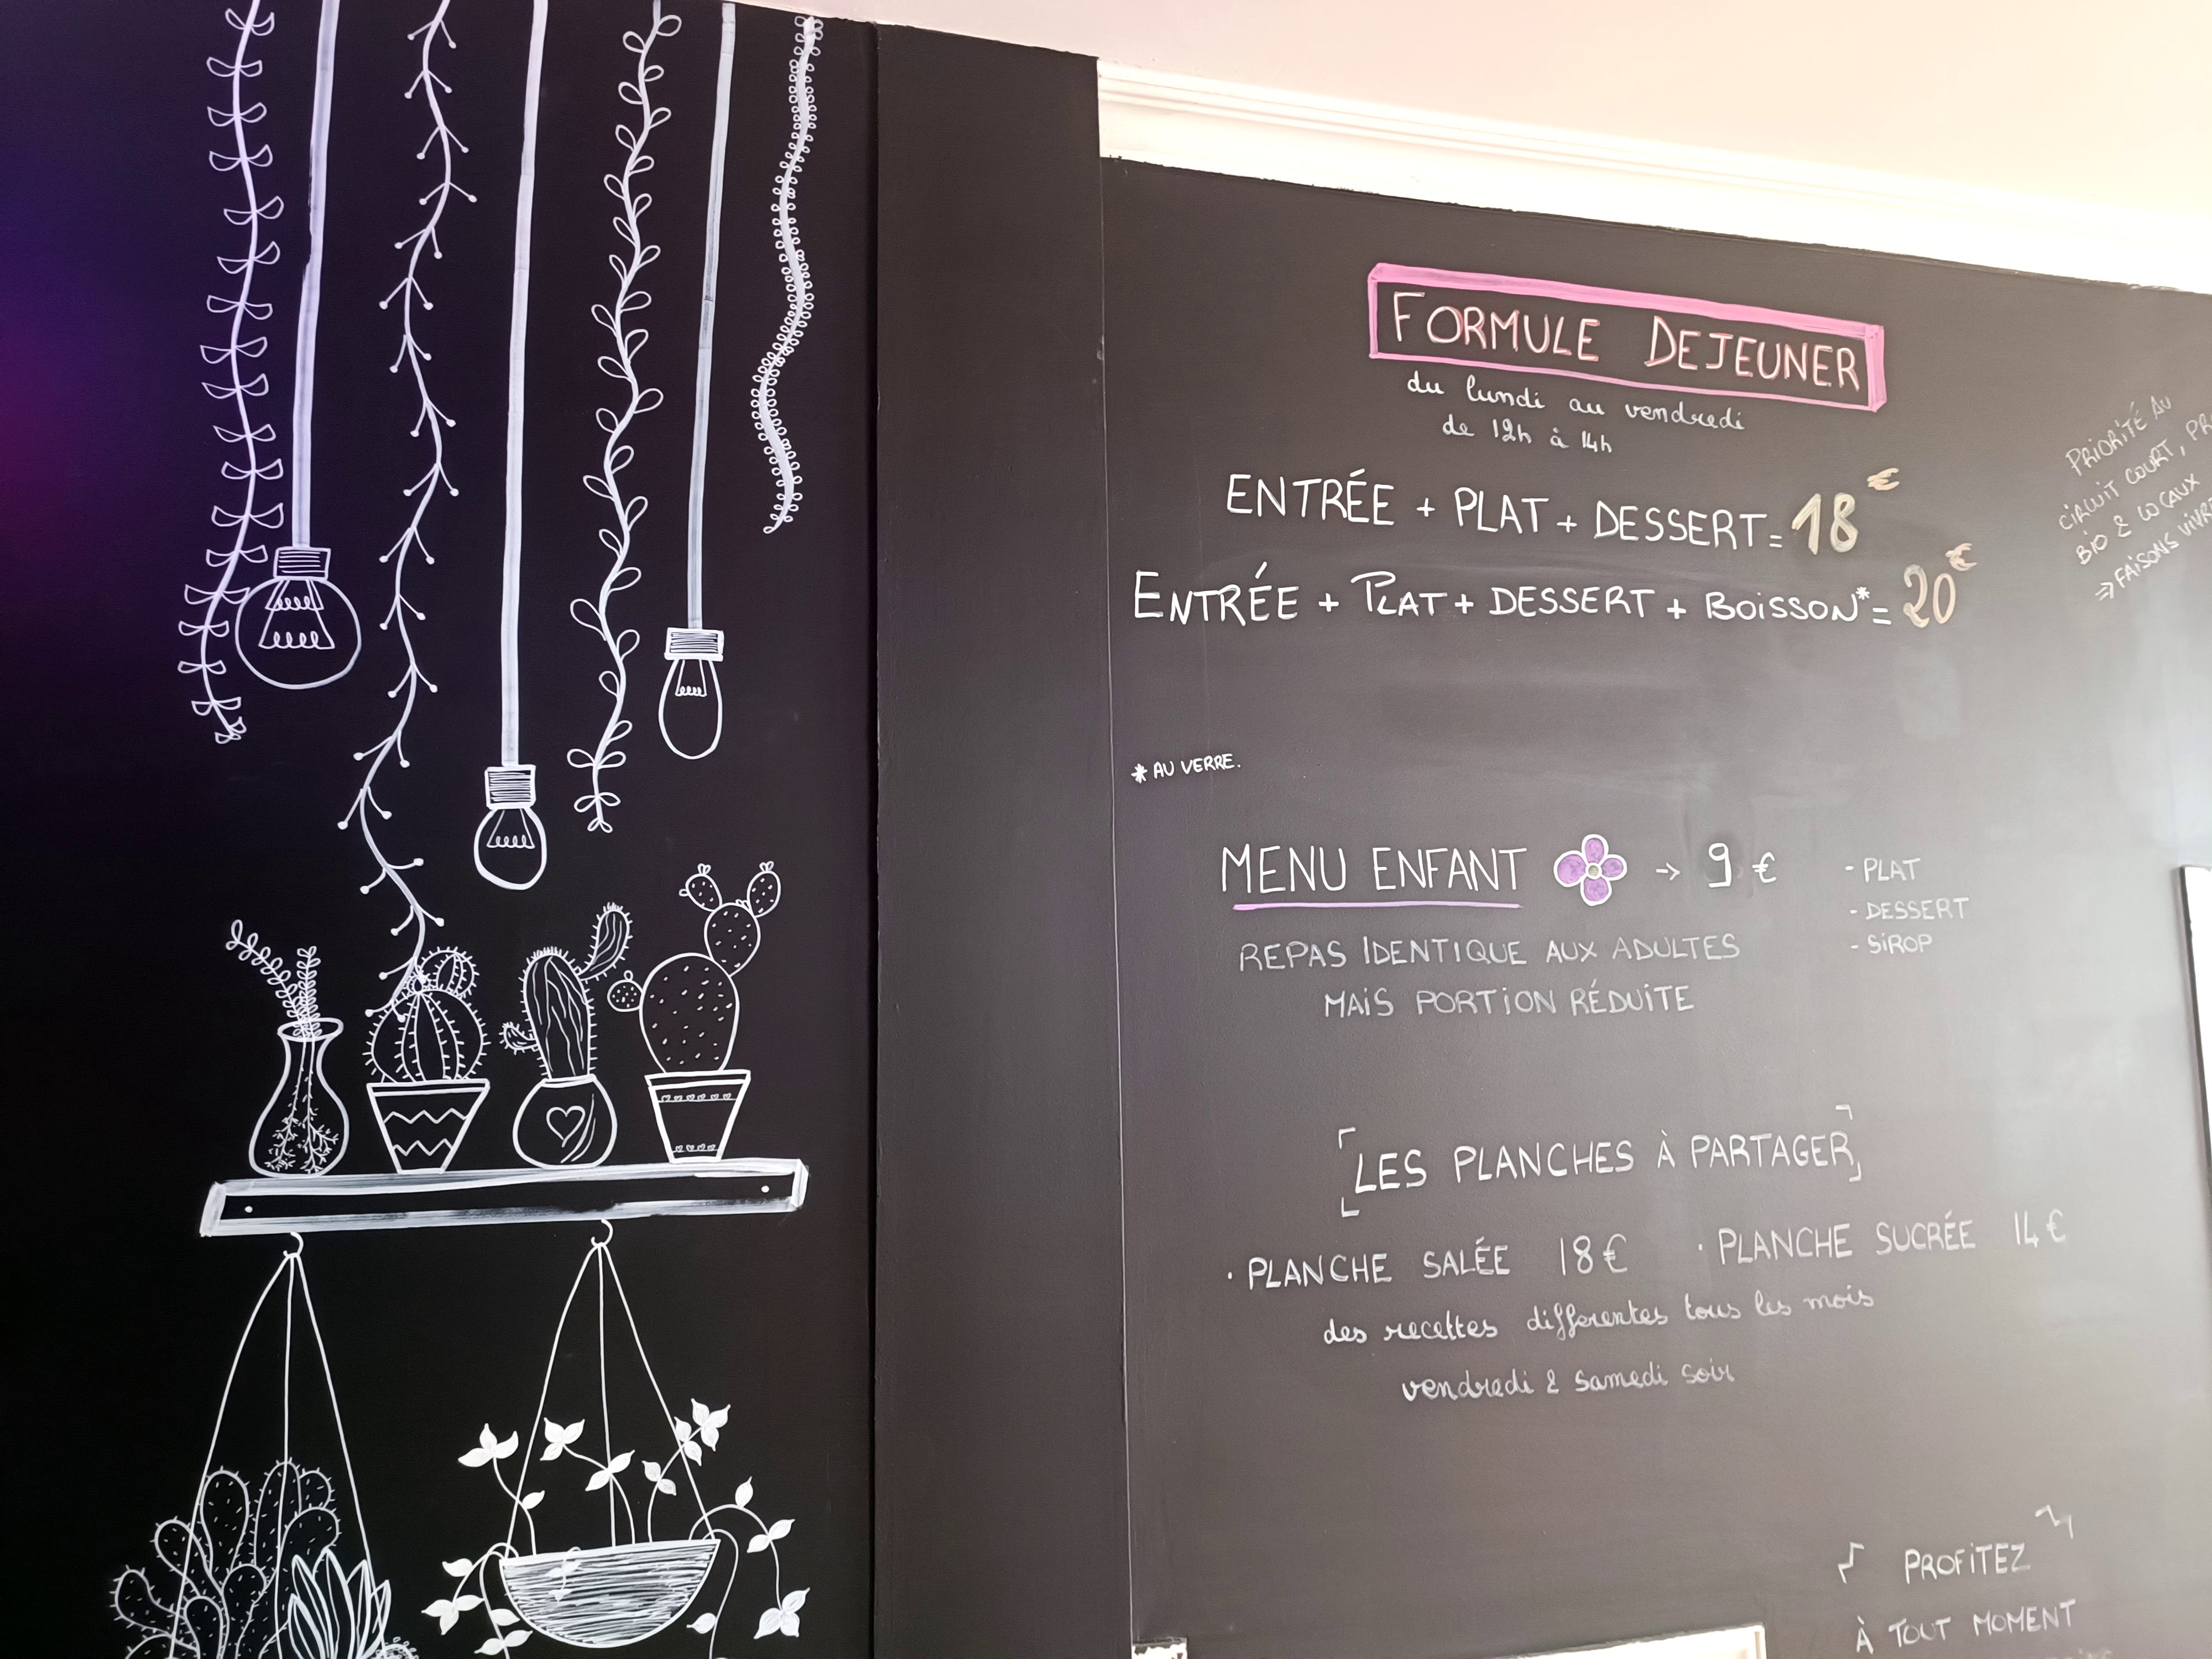 FORMULE DEJEUNER
du lundi au vendredi
de 12h à 14h
ENTRÉE + PLAT + DESSERT = 18€
ENTRÉE + PLAT + DESSERT + BOISSON* = 20€
* AU VERRE.
PRIORITÉ AU
CIRCUIT COURT,
BIO & LOCAUX
⇒ FAISONS VIVRE
MENU ENFANT → 9 €
- PLAT
- DESSERT
- SIROP
REPAS IDENTIQUE AUX ADULTES
MAIS PORTION RÉDUITE
LES PLANCHES À PARTAGER
· PLANCHE SALÉE 18€ · PLANCHE SUCRÉE 14€
des recettes differentes tous les mois
vendredi & samedi soir
PROFITEZ
À TOUT MOMENT